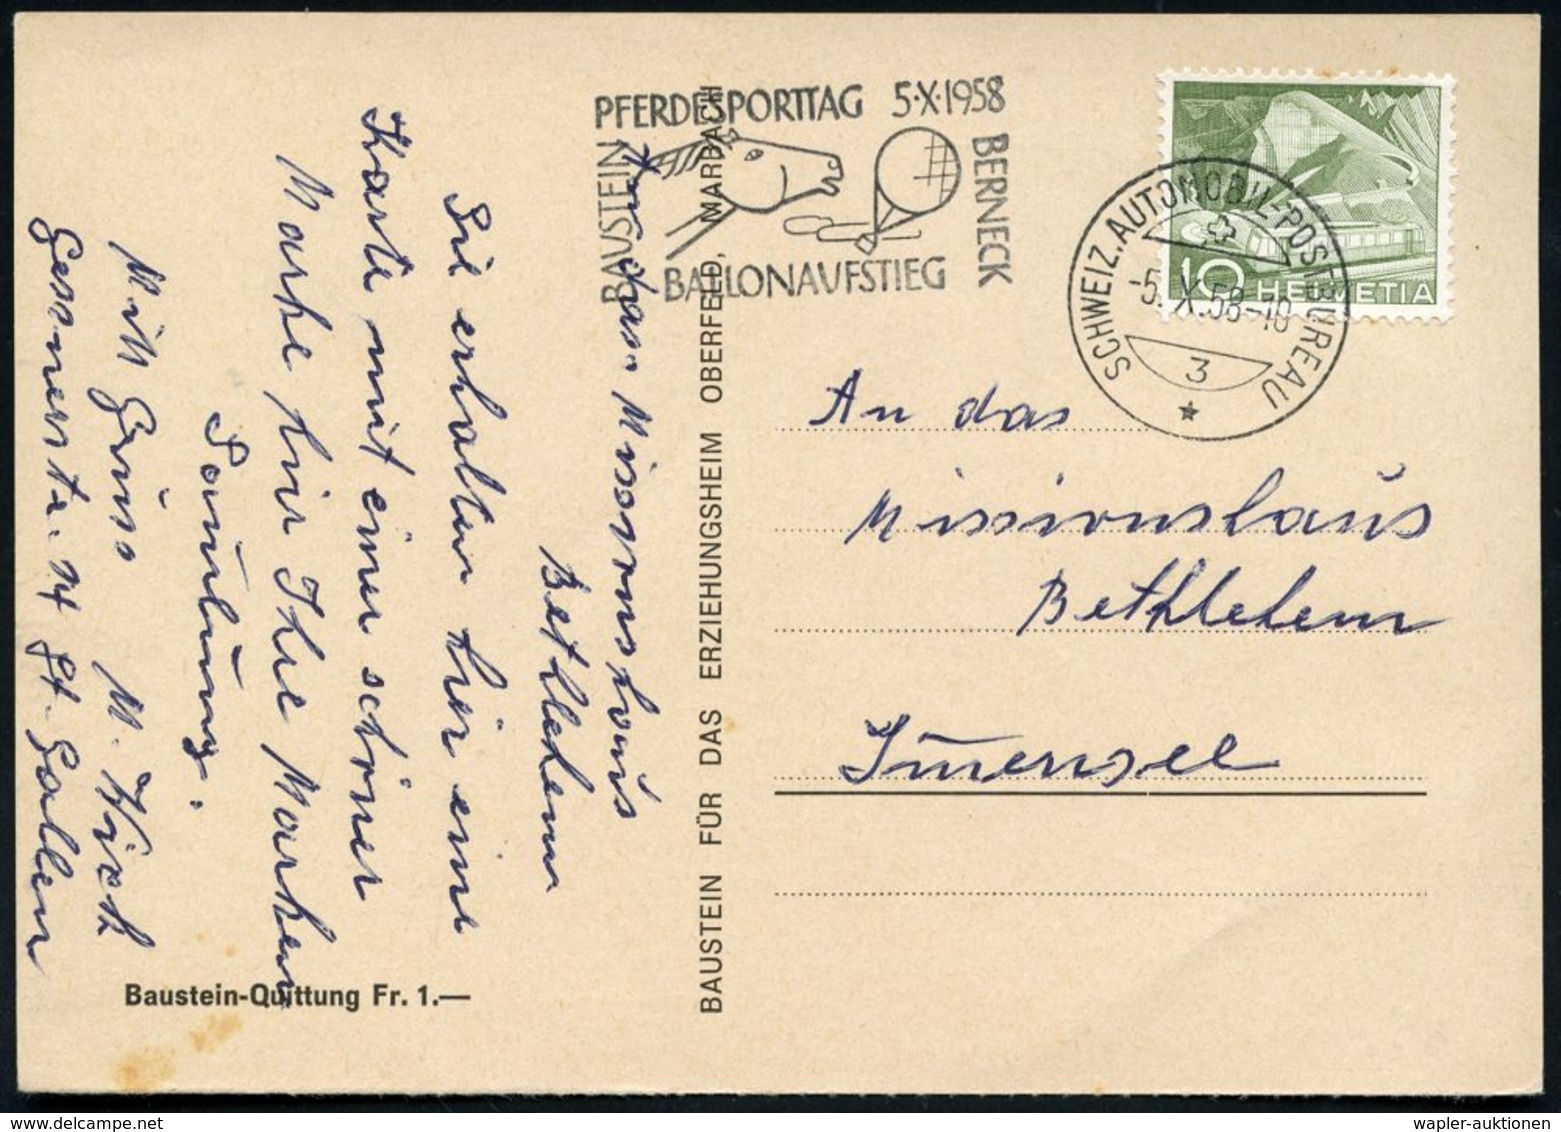 PFERDESPORTTAG 5·X·1958
BAUSTEIN
BERNECK
BALLONAUFSTIEG
SCHWEIZ. AUTOMOBIL-POSTBUREAU
-5. X. 58-10
3
10 HELVETIA
An das
Missionshaus
Bethlehem
Immensee
BAUSTEIN FÜR DAS ERZIEHUNGSHEIM OBERFELD, MARBACH
An das Missionshaus
Bethlehem
Sie erhalten hier eine
Karte mit einer schöner
Marke für Ihre Marken
Samlung.
Mitt Grüss M.
Gessnerstr. 14 St. Gallen
Baustein-Quittung Fr. 1.—
wapler-auktionen